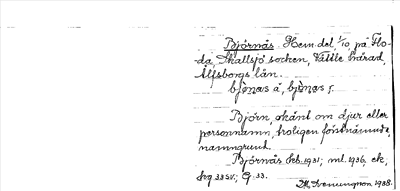 Björnås Hem.del 1/10, på Flo-
da, Skallsjö socken, Vättle härad,
Älfsborgs län.
bjö̀nas å, bjö̀nas
Björn, okänt om djur eller
personnamn, troligen förstnämnda,
namngrund.
Björnås Jeb. 1931; ml. 1936, ek,
1908.